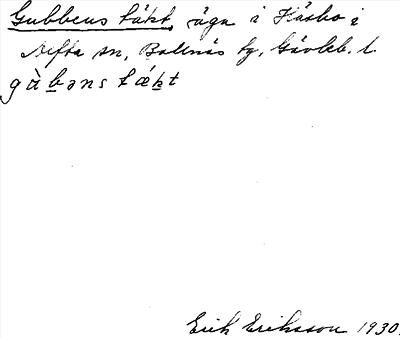 Gubbens täkt, äga i Häsbo i
Alfta sn, Bollnäs tg, Gävleb. l.
gàbəns tǽkt
Erik Eriksson 1930.